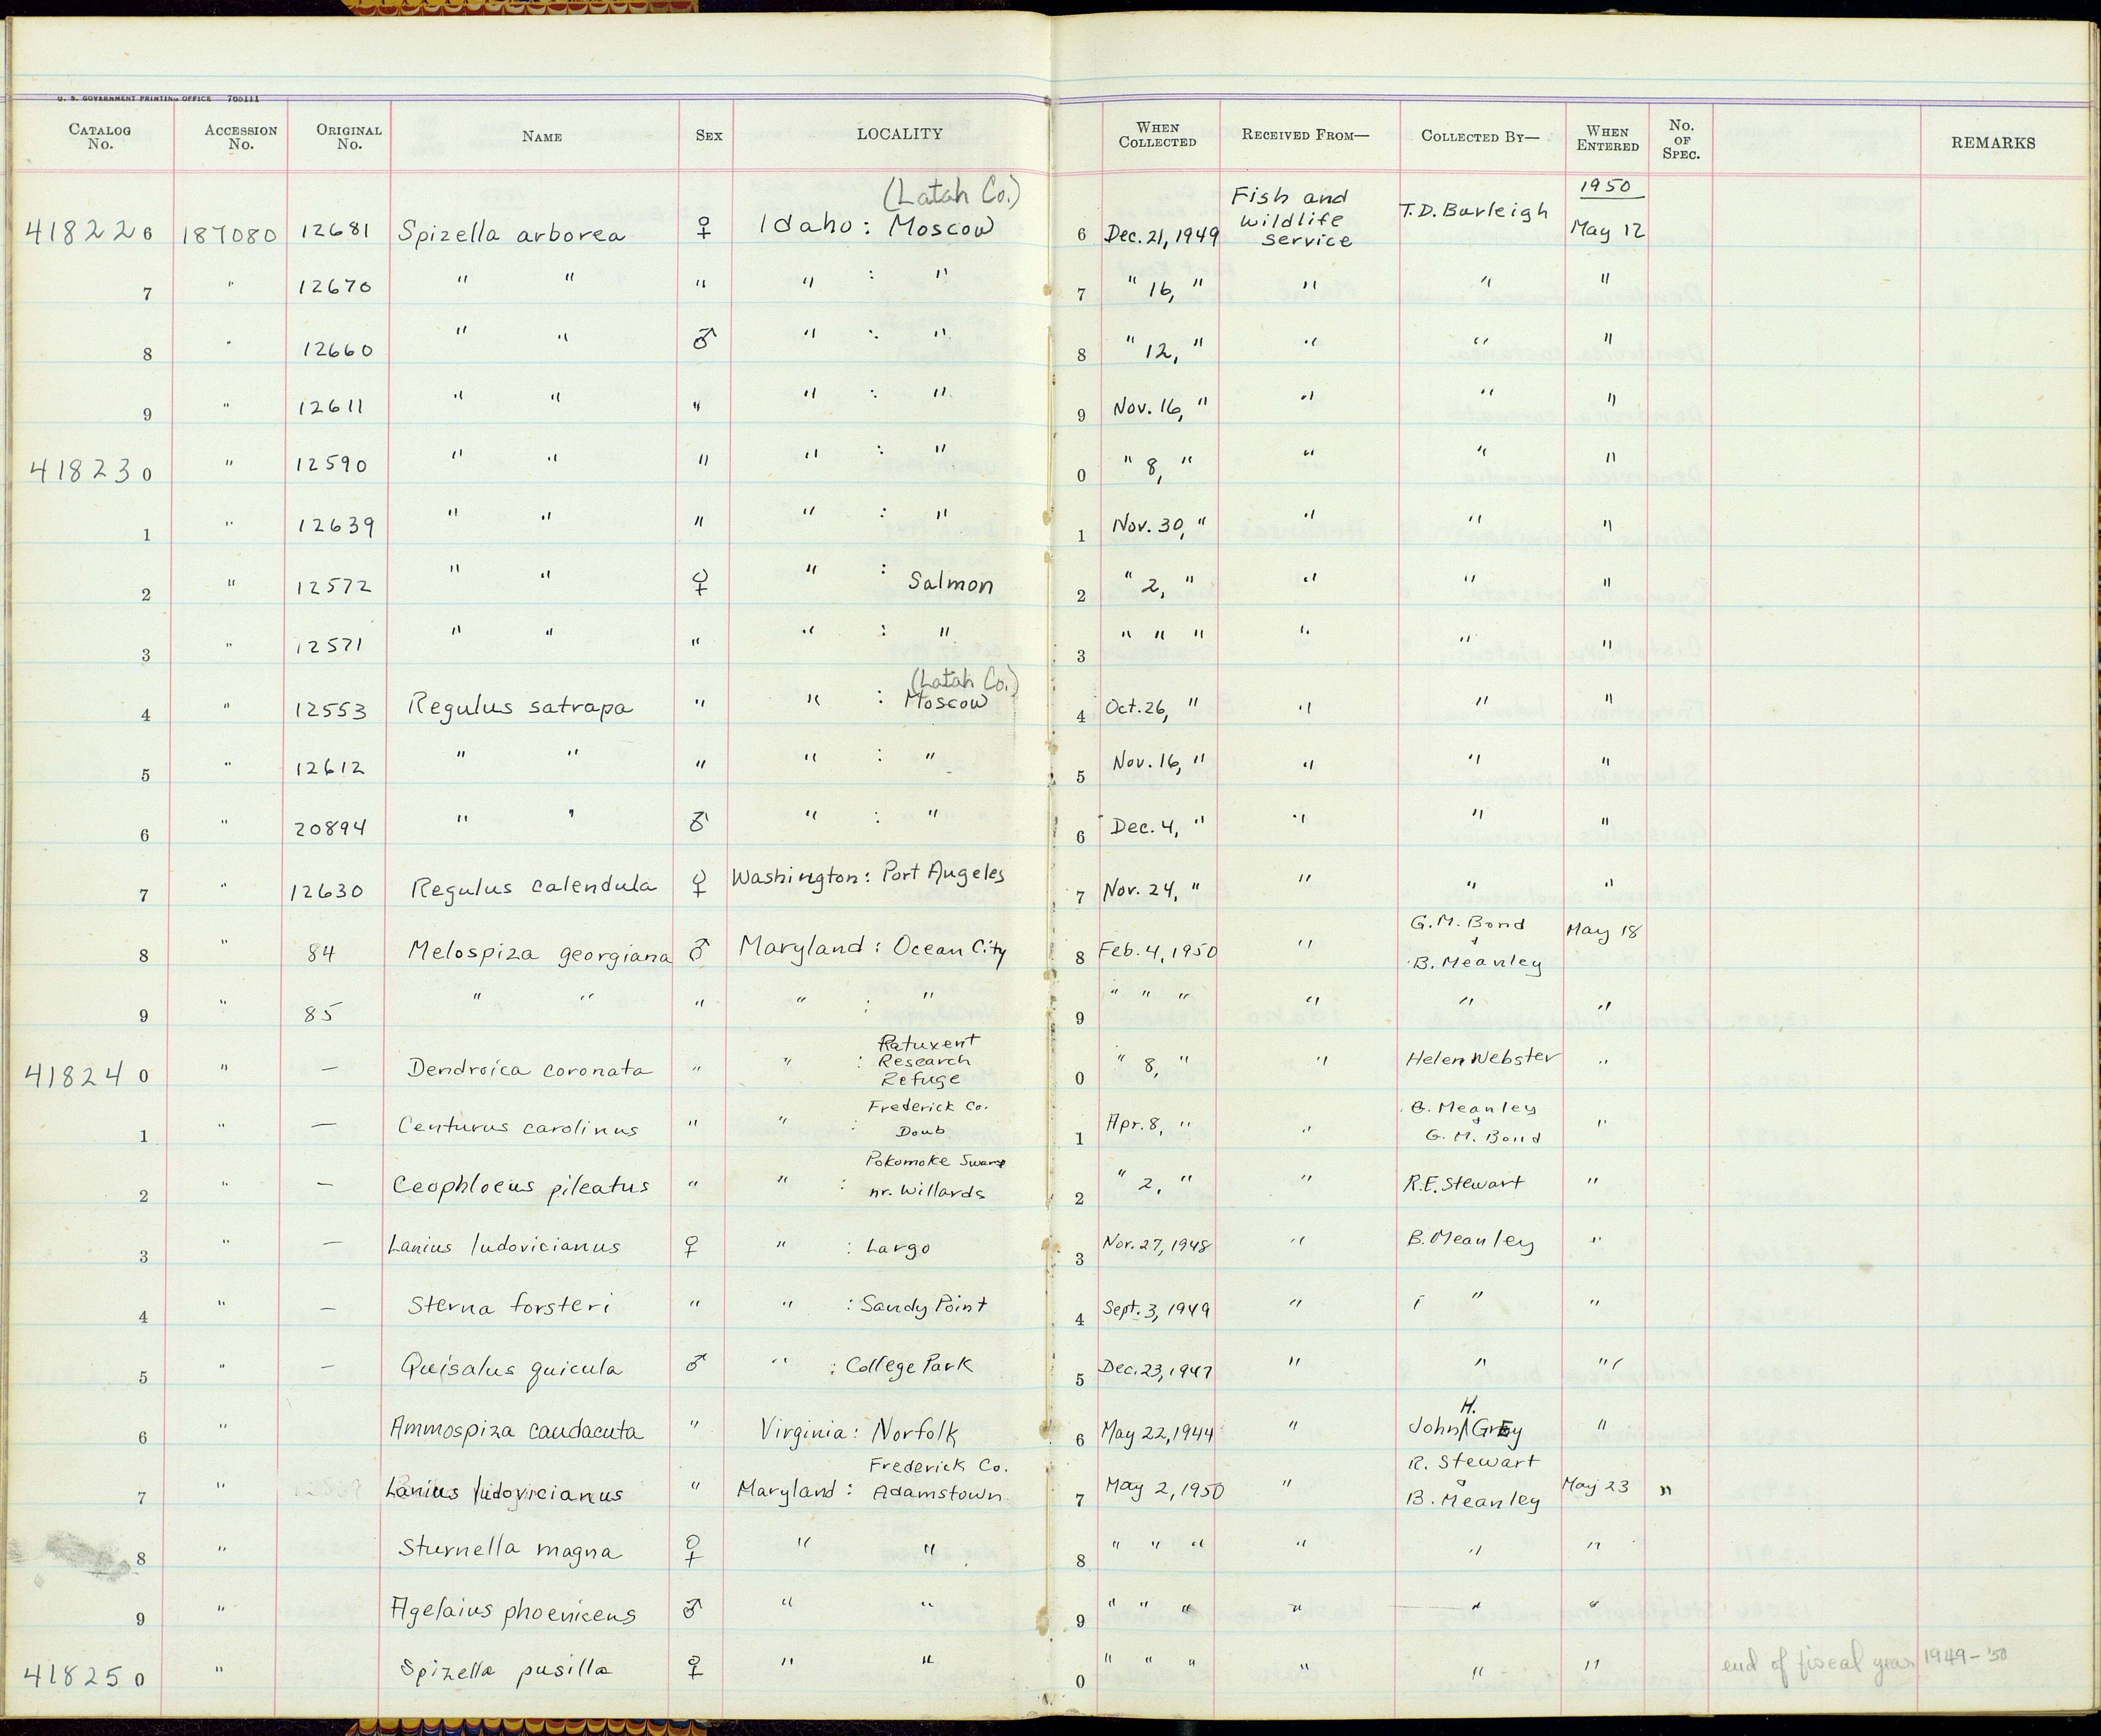 U. S. GOVERNMENT PRINTING OFFICE 765111
CATALOG No. ACCESSION No. ORIGINAL No. NAME SEX LOCALITY WHEN COLLECTED RECEIVED FROM— COLLECTED BY— WHEN ENTERED No. OF SPEC. REMARKS
(Latah Co.) 1950
418226 187080 12681 Spizella arborea ♀ Idaho: Moscow 6 Dec. 21, 1949 Fish and Wildlife Service T.D. Burleigh May 12
7 " 12670 " " " " : " 7 " 16, " " " "
8 " 12660 " " ♂ " : " 8 " 12, " " " "
9 " 12611 " " " " : " 9 Nov. 16, " " " "
418230 " 12590 " " " " : " 0 " 8, " " " "
1 " 12639 " " " " : " 1 Nov. 30, " " " "
2 " 12572 " " ♀ " : Salmon 2 " 2, " " " "
3 " 12571 " " " " : " 3 " " " " " "
(Latah Co.)
4 " 12553 Regulus satrapa " " : Moscow 4 Oct. 26, " " " "
5 " 12612 " " " " : " 5 Nov. 16, " " " "
6 " 20894 " " ♂ " : " 6 Dec. 4, " " " "
7 " 12630 Regulus calendula ♀ Washington: Port Angeles 7 Nov. 24, " " " "
8 " 84 Melospiza georgiana ♂ Maryland: Ocean City 8 Feb. 4, 1950 " G.M. Bond & B. Meanley May 18
9 " 85 " " " " : " 9 " " " " " "
418240 " — Dendroica coronata " " : Patuxent Research Refuge 0 " 8, " " Helen Webster "
1 " — Centurus carolinus " " : Frederick Co. Doub 1 Apr. 8, " " B. Meanley & G. M. Bond "
2 " — Ceophloeus pileatus " " : Pokomoke Swamp nr. Willards 2 " 2, " " R.E. Stewart "
3 " — Lanius ludovicianus ♀ " : Largo 3 Nov. 27, 1948 " B. Meanley "
4 " — Sterna forsteri " " : Sandy Point 4 Sept. 3, 1949 " " "
5 " — Quisalus quicula ♂ " : College Park 5 Dec. 23, 1947 " " "
6 " Ammospiza caudacuta " Virginia: Norfolk 6 May 22, 1944 " John H. Grey "
7 " Lanius ludovicianus " Maryland: Frederick Co. Adamstown 7 May 2, 1950 " R. Stewart & B. Meanley May 23 "
8 " Sturnella magna ♀ " " 8 " " " " " "
9 " Agelaius phoeniceus ♂ " " 9 " " " " " "
418250 " Spizella pusilla ♀ " " 0 " " " " " " end of fiscal year 1949-'50